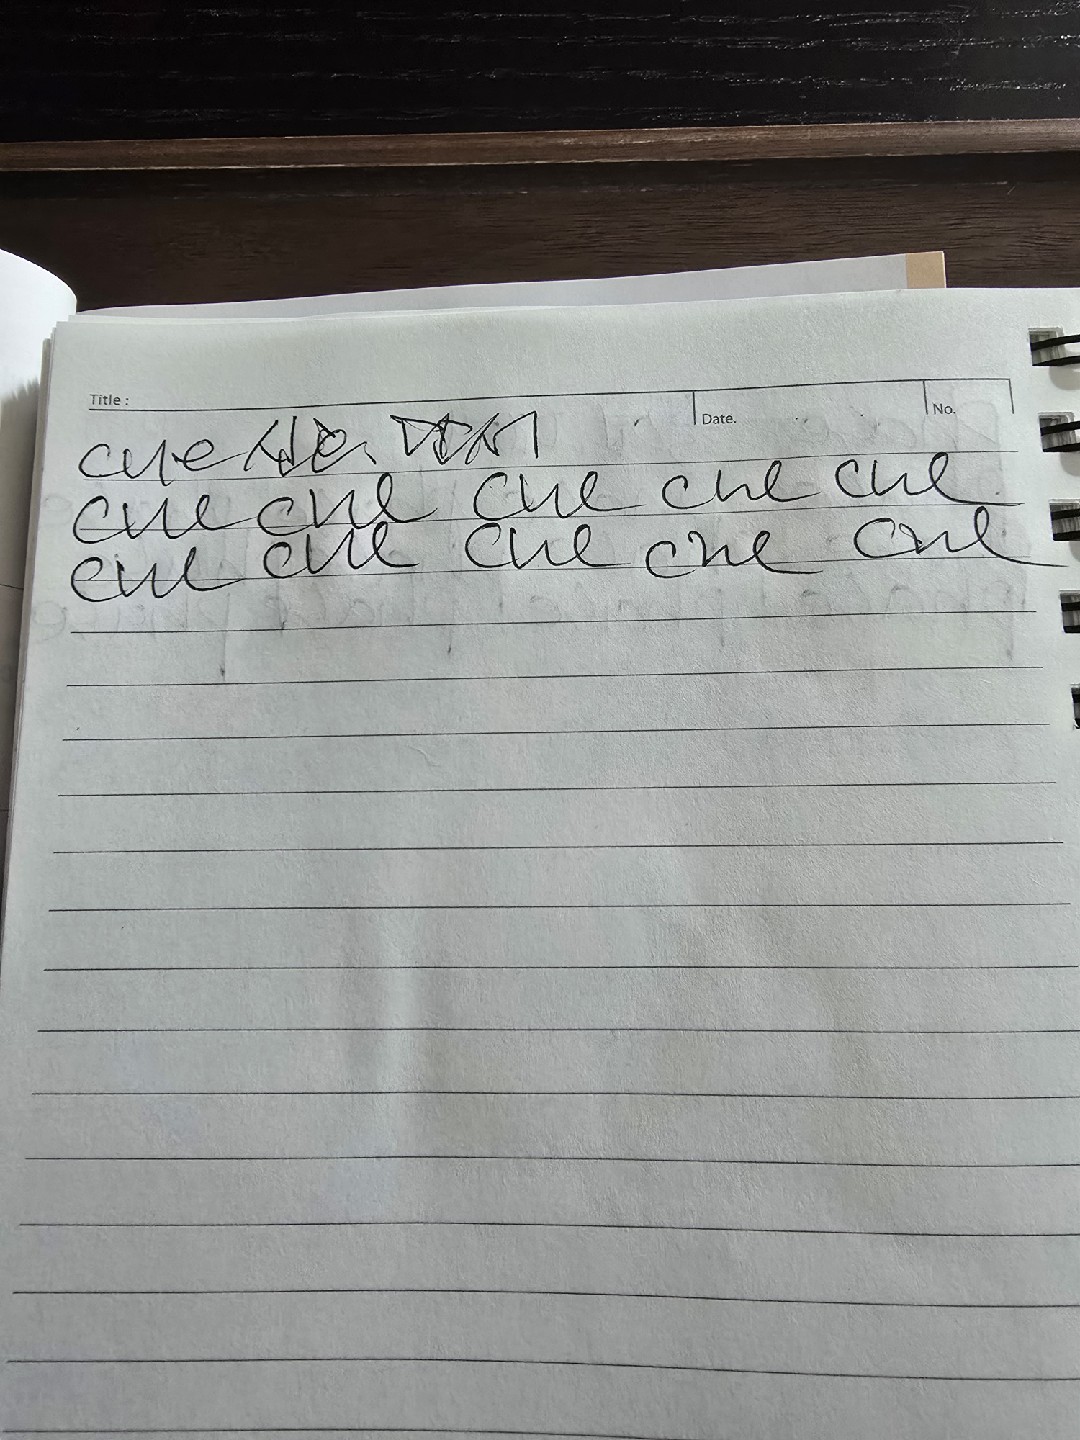 Title :
Date.
No.
cue 신호, 단서
cue cue cue cue cue
cue cue cue cue cue